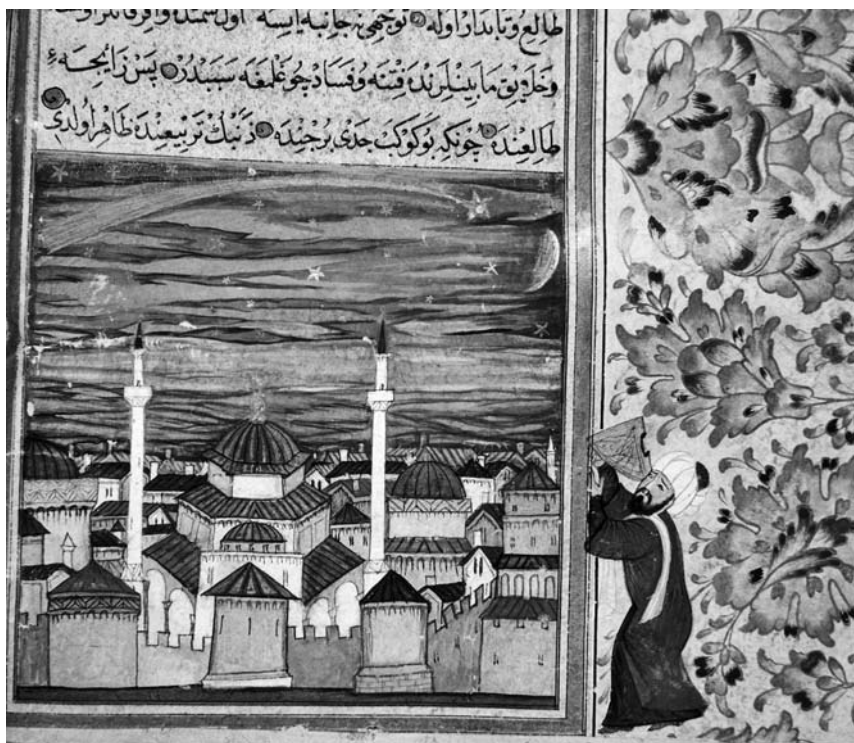 طالع و تابدار اوله توجهی نه جانبه ایسه اول سمتده
وخلایق مابینلرنده فتنه وفساد چوغلمغه سببدر پس زایجهٔ
طالعنده چونکه بو کوکب جدی برجنده ذنبك تربیعنده ظاهر اولدی